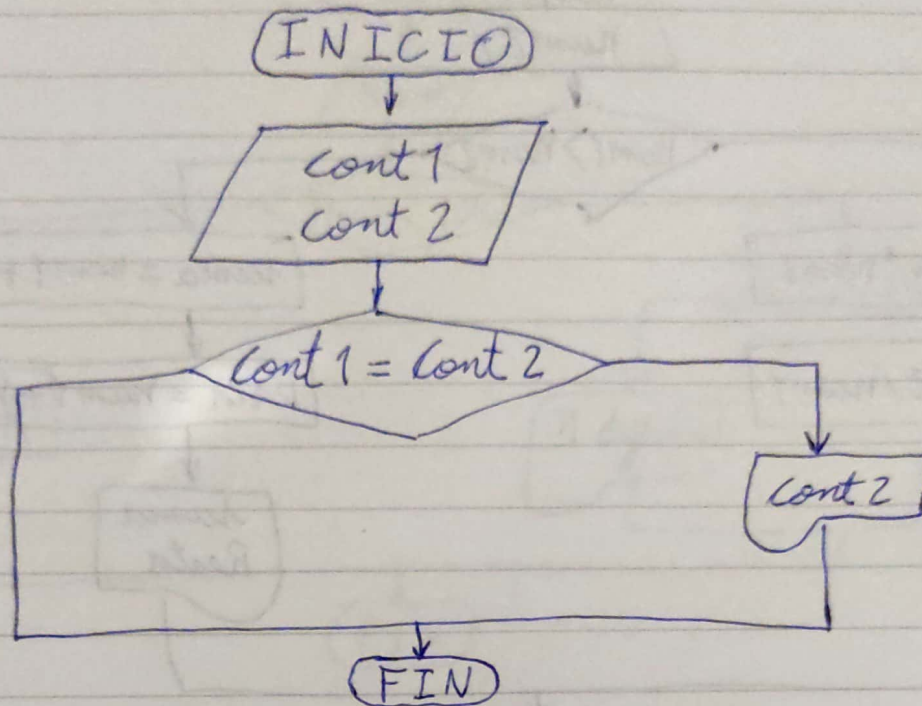 INICIO
Cont 1
Cont 2
Cont 1 = Cont 2
Cont 2
FIN